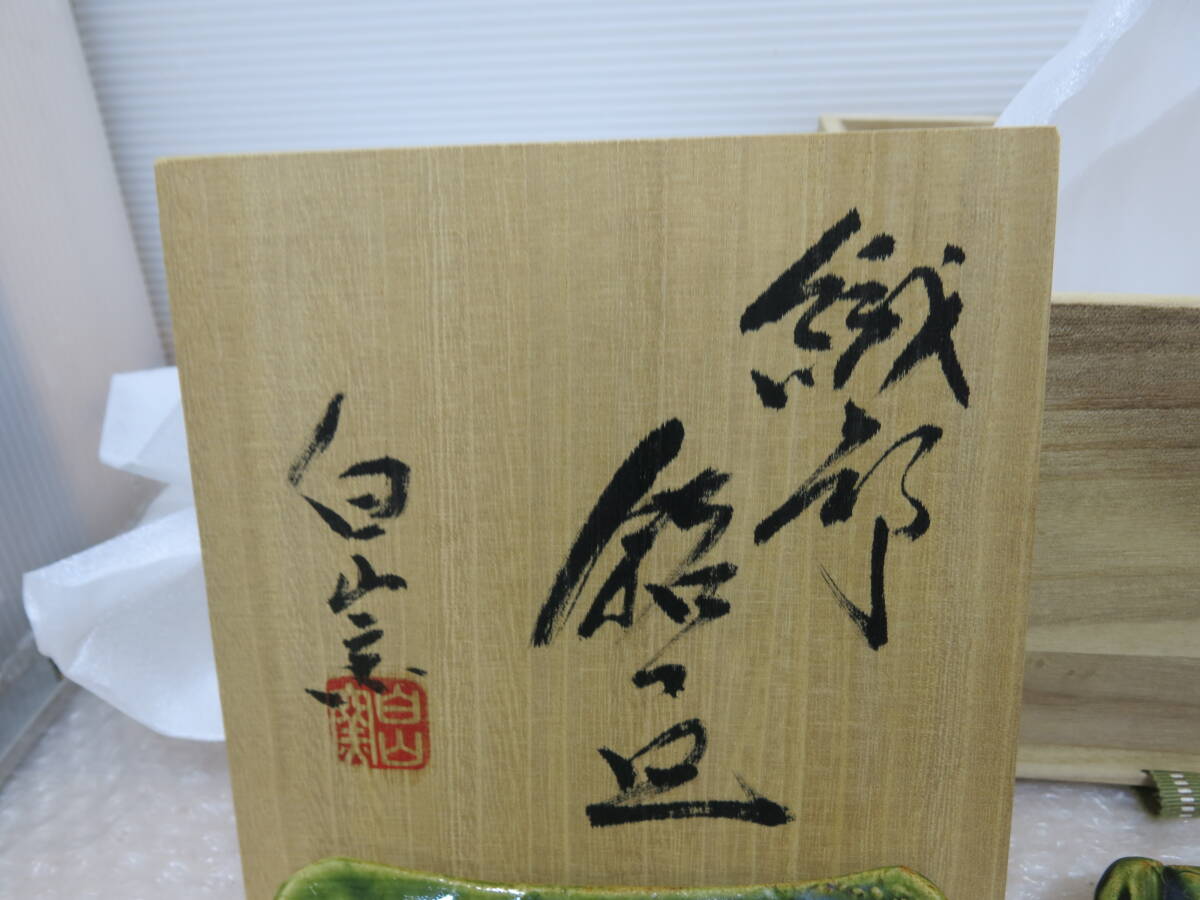 織部
銘々皿
白山窯
白山窯